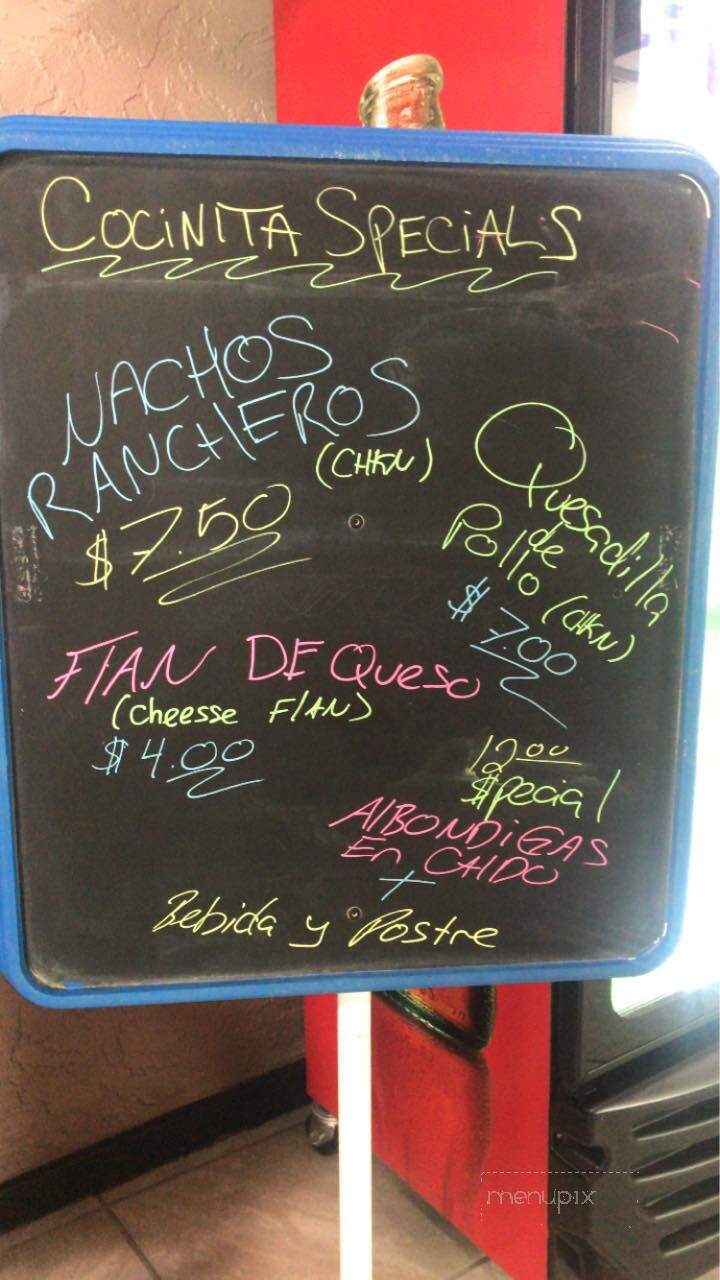 COCINITA SPECIALS
NACHOS
RANCHEROS
(CHKN)
$7.50
Quesadilla
de
Pollo (CHKN)
$7.00
FlAN DE Queso
(Cheesse FlAN)
$4.00
12.00
$pecial
AlBONDiGAS
En CAlDO
+
Bebida y Postre
menupix